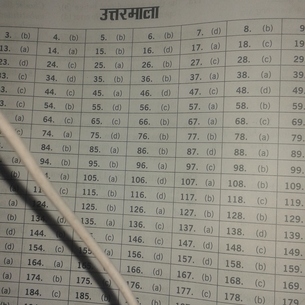 उत्तरमाला
3. (b) 4. (b) 5. (b) 6. (b) 7. (d) 8. (b) 9
13. (a) 14. (a) 15. (b) 16. (d) 17. (a) 18. (c) 19.
23. (d) 24. (c) 25. (a) 26. (b) 27. (c) 28. (c) 29
33. (c) 34. (d) 35. (b) 36. (b) 37. (a) 38. (a) 39.
(c) 44. (c) 45. (a) 46. (d) 47. (c) 48. (d) 49.
(c) 54. (b) 55. (c) 56. (c) 57. (a) 58. (b) 59.
(a) 64. (c) 65. (c) 66. (b) 67. (b) 68. (a) 69.
(c) 74. (c) 75. (d) 76. (b) 77. (b) 78. (a) 79
84. (b) 85. (a) 86. (b) 87. (d) 88. (a) 89.
(a) 94. (c) 95. (b) 96. (a) 97. (c) 98. (b) 99.
(a) (a) 105. (a) 106. (d) 107. (a) 108. (b) 109
(b) (c) 115. (b) 116. (d) 117. (d) 118. (c)
(a) 124. 125. (b) 126. (a) 127. (b) 128. (b) 129.
(b) (d) 135. (a) 136. (c) 137. (a) 138. (d) 139.
(d) 144. (b) (c) 146. (c) 147. (c) 148. (c) 149.
(d) 154. (c) (a) 156. (d) 157. (d) 158. (b) 159.
(a) 164. (a) (d) 167. (b) 168. (c) 169.
(a) 174. (b) 175. (c) 176. (a) 177. (a) 178. (a)
(a) 184. (c) 185. (b)